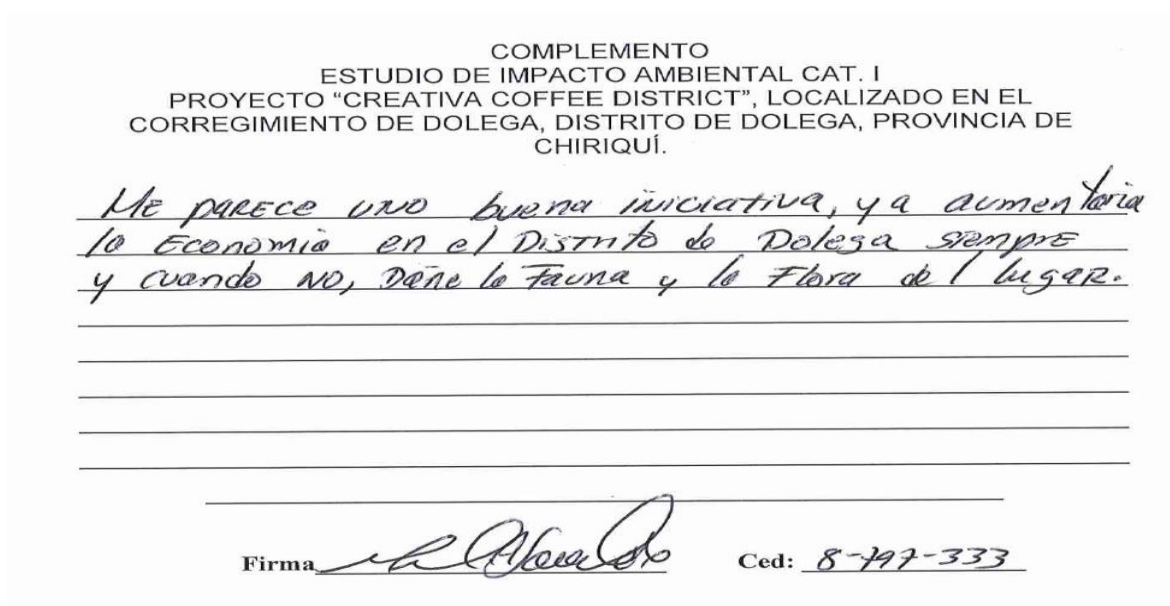 COMPLEMENTO
ESTUDIO DE IMPACTO AMBIENTAL CAT. I
PROYECTO “CREATIVA COFFEE DISTRICT”, LOCALIZADO EN EL
CORREGIMIENTO DE DOLEGA, DISTRITO DE DOLEGA, PROVINCIA DE
CHIRIQUÍ.
Me parece uno buena iniciativa, ya aumentaria
la Economia en el Distrito de Dolega siempre
y cuando NO, Dañe la Fauna y la Flora del lugar.
Firma
Ced: 8-797-333